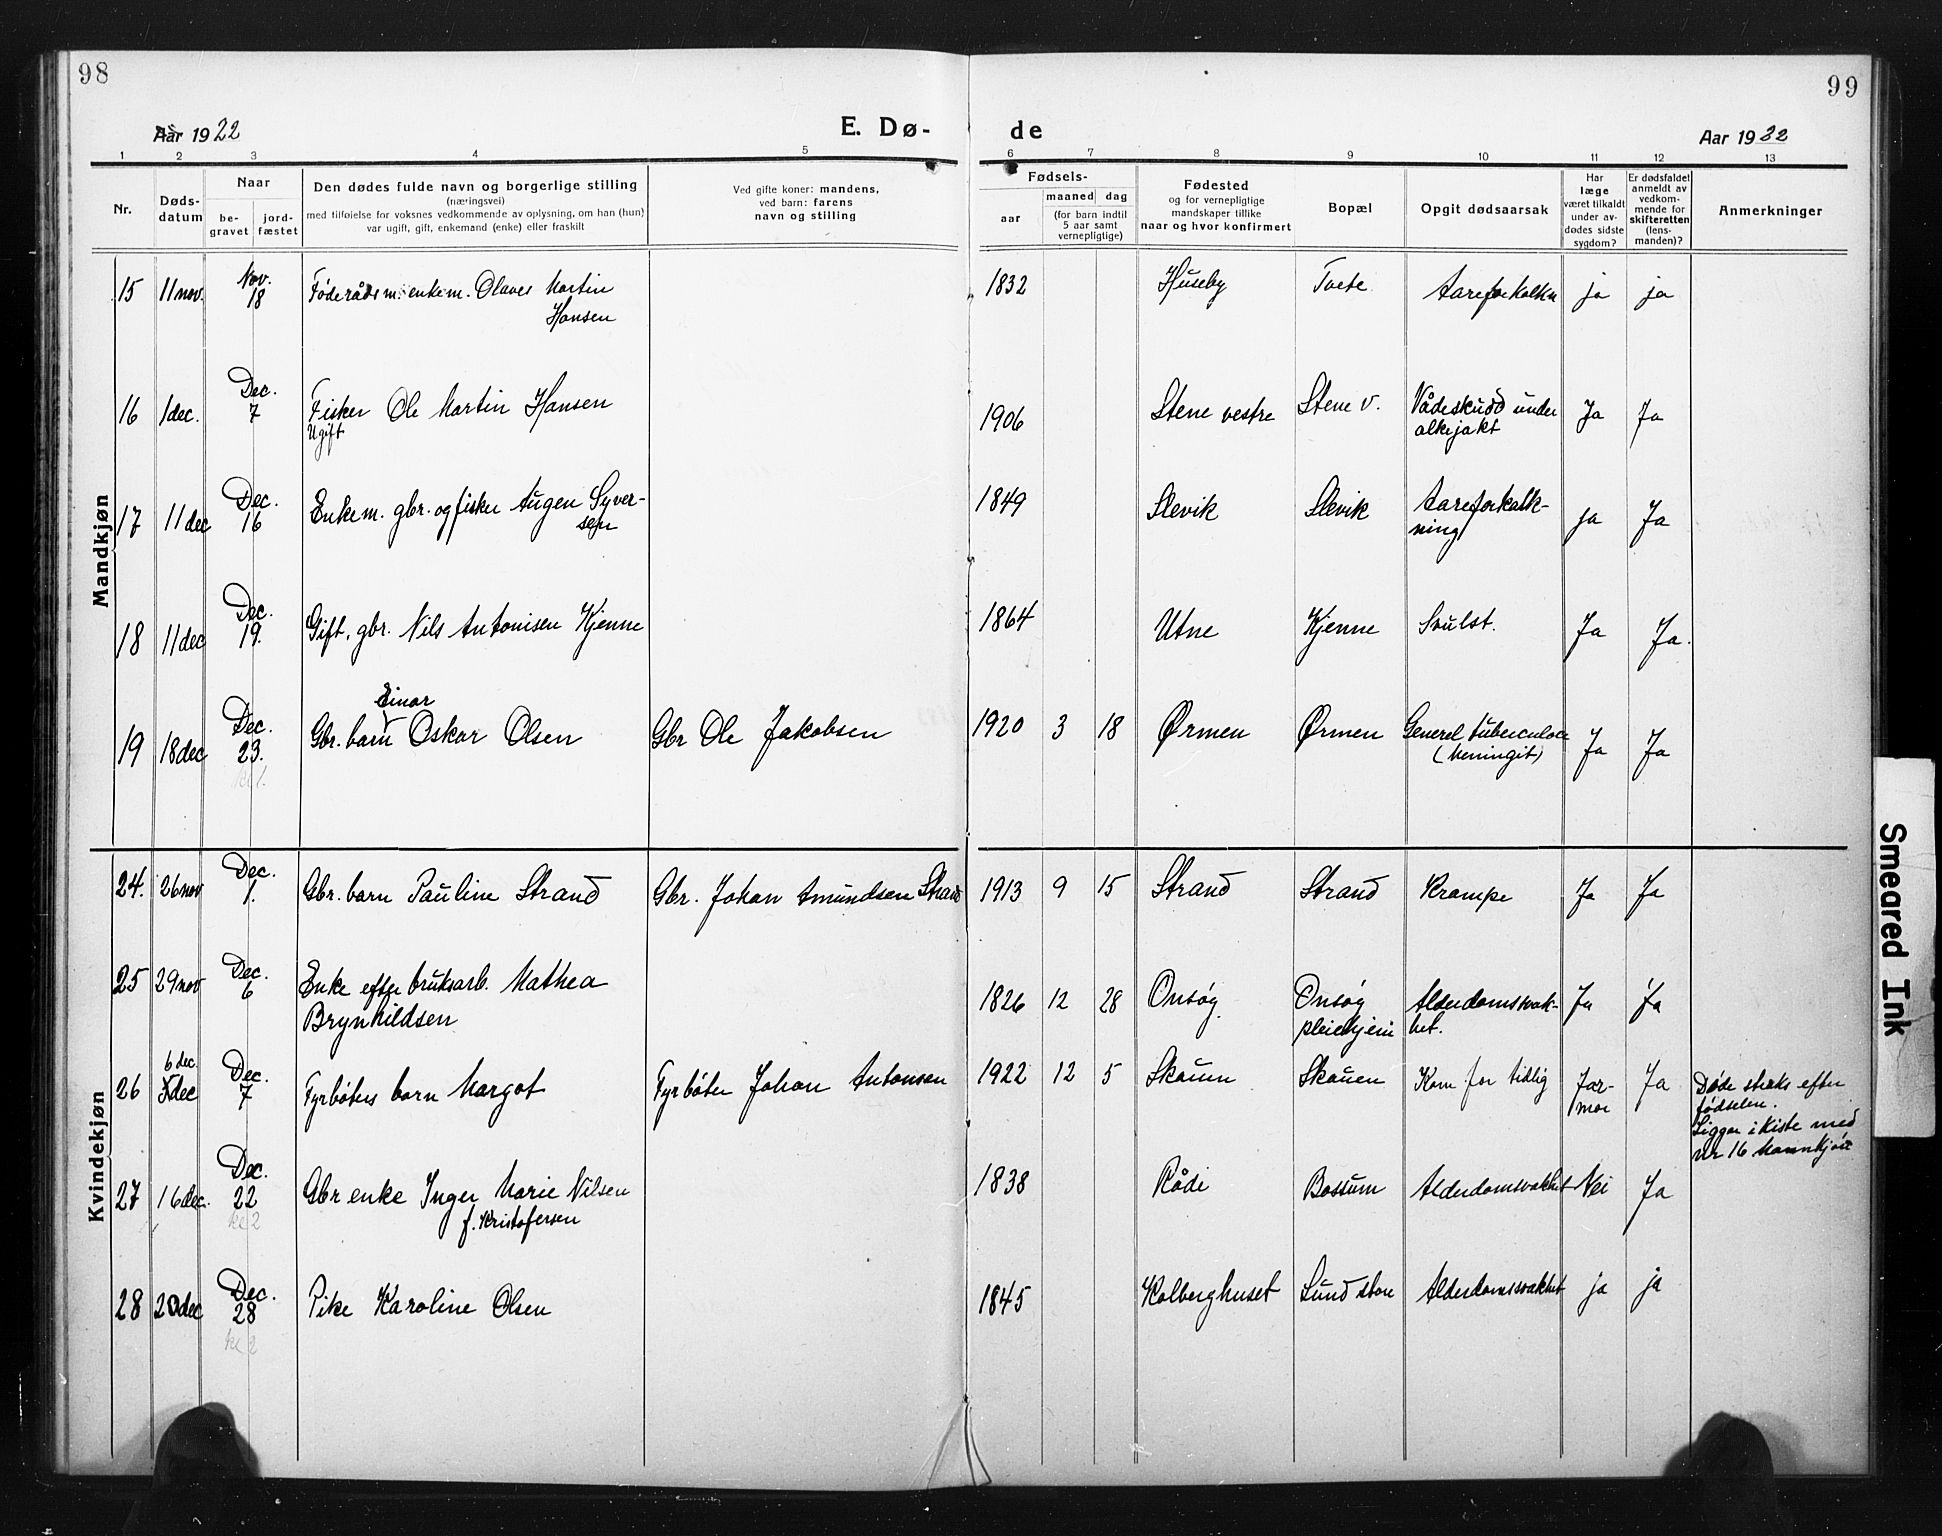 98
99
Aar 1922
E. Dø-
de
Aar 1922
1 2 3 4 5 6 7 8 9 10 11 12 13
Nr.
Døds-
datum
Naar
be-
gravet
jord-
fæstet
Den dødes fulde navn og borgerlige stilling
(næringsvei)
med tilføielse for voksnes vedkommende av oplysning, om han (hun)
var ugift, gift, enkemand (enke) eller fraskilt
Ved gifte koner: mandens,
ved barn: farens
navn og stilling
Fødsels-
aar
maaned dag
(for barn indtil
5 aar samt
vernepligtige)
Fødested
og for vernepligtige
mandskaper tillike
naar og hvor konfirmert
Bopæl
Opgit dødsaarsak
Har
læge
været tilkaldt
under av-
dødes sidste
sygdom?
Er dødsfaldet
anmeldt av
vedkom-
mende for
skifteretten
(lens-
manden)?
Anmerkninger
Mandkjøn
15 11 nov. Nov. 18 Føderådsm. enkem. Olaves Martin
Hansen
1832 Huseby Tvete Aareforkalkn ja ja
16 1 dec. Dec. 7 Fisker Ole Martin Hansen
Ugift
1906 Stene vestre Stene v. Vådeskudd under
alkejakt
Ja Ja
17 11 dec Dec. 16 Enkem. gbr. og fisker Augen Syver-
sen
1849 Slevik Slevik Aareforkalk-
ning
ja Ja
18 11 dec Dec. 19. Gift. gbr. Nils Antonisen Kjenne
1864 Utne Kjenne Svulst. Ja Ja.
19 18 dec Dec. 23. Einar
Gbr. barn Oskar Olsen Gbr Ole Jakobsen
kl 1.
1920 3 18 Ørmen Ørmen Generel tuberculose
(Meningit)
Ja Ja
Kvindekjøn
24. 26 nov Dec. 1. Gbr. barn Pauline Strand Gbr. Johan Amundsen Strand
1913 9 15 Strand Strand Krampe Ja Ja
25 29 nov Dec. 6 Enke efter bruksarb. Mathea
Brynhildsen
1826 12 28 Onsøy Onsøy
pleiehjem
Alderdomssvak-
het.
Ja Ja
6 dec.
26 5 dec Dec. 7 Fyrbøters barn Margot Fyrbøter Johan Antonsen
1922 12 5 Skauen Skauen Kom for tidlig Jor-
mor
Ja Døde straks efter
fødselen.
Ligger i kiste med
nr 16 Mannkjøn
27 16 dec. Dec. 22 Gbr enke Inger Marie Nilsen
f. Kristofersen
kl 2
1838 Råde Bossum Alderdomsvakhet Nei Ja
28 20 dec Dec. 28 Pike Karoline Olsen
kl 2
1845 Kolberghuset Lund store Alderdomssvakhet ja ja
Smeared Ink